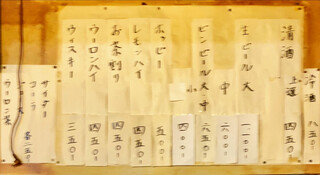 冷酒 八五〇-
清酒 上選 四五〇-
生ビール 大 一一〇〇-
中 六〇〇-
ビンビール 大 六五〇-
小 四〇〇-
ホッピー 五〇〇-
レモンハイ 四五〇-
お茶割り 四五〇-
ウーロンハイ 四五〇-
ウィスキー 三五〇-
サイダー
コーラ
ジュース
ウーロン茶
各二五〇-